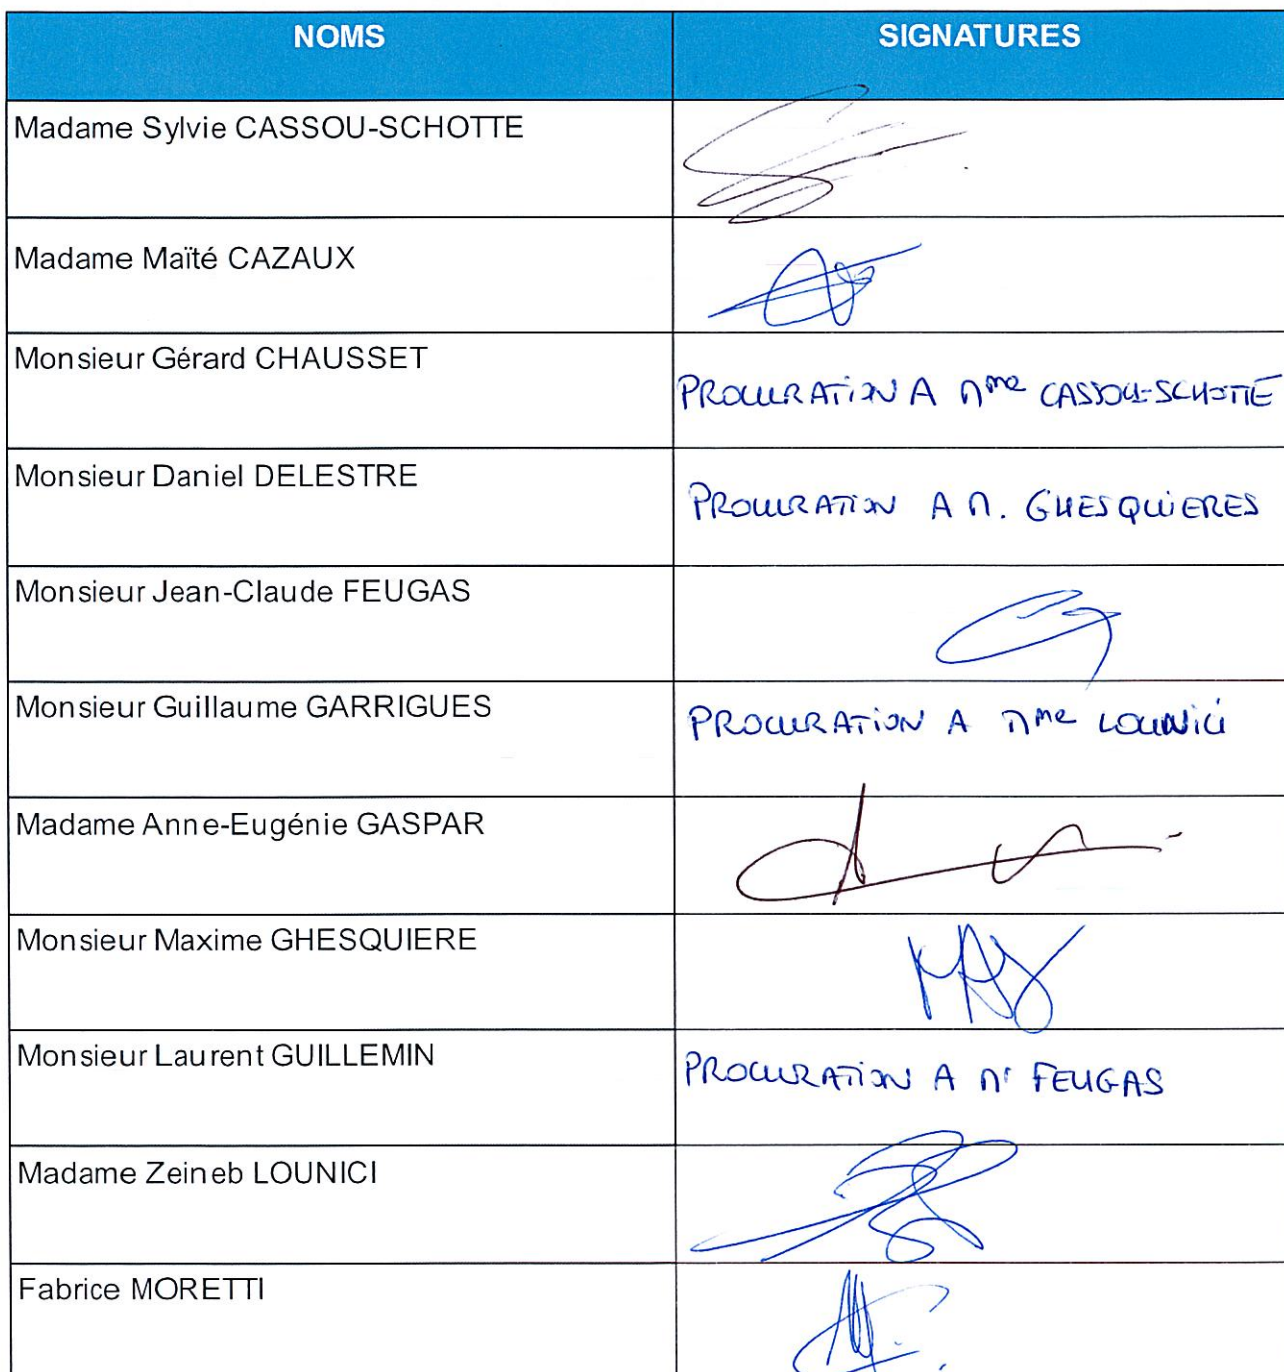 NOMS SIGNATURES
Madame Sylvie CASSOU-SCHOTTE
Madame Maïté CAZAUX
Monsieur Gérard CHAUSSET
PROCURATION A Mme CASSOU-SCHOTTE
Monsieur Daniel DELESTRE
PROCURATION A M. GHESQUIERES
Monsieur Jean-Claude FEUGAS
Monsieur Guillaume GARRIGUES
PROCURATION A Mme LOUNICI
Madame Anne-Eugénie GASPAR
Monsieur Maxime GHESQUIERE
Monsieur Laurent GUILLEMIN
PROCURATION A Mr FEUGAS
Madame Zeineb LOUNICI
Fabrice MORETTI